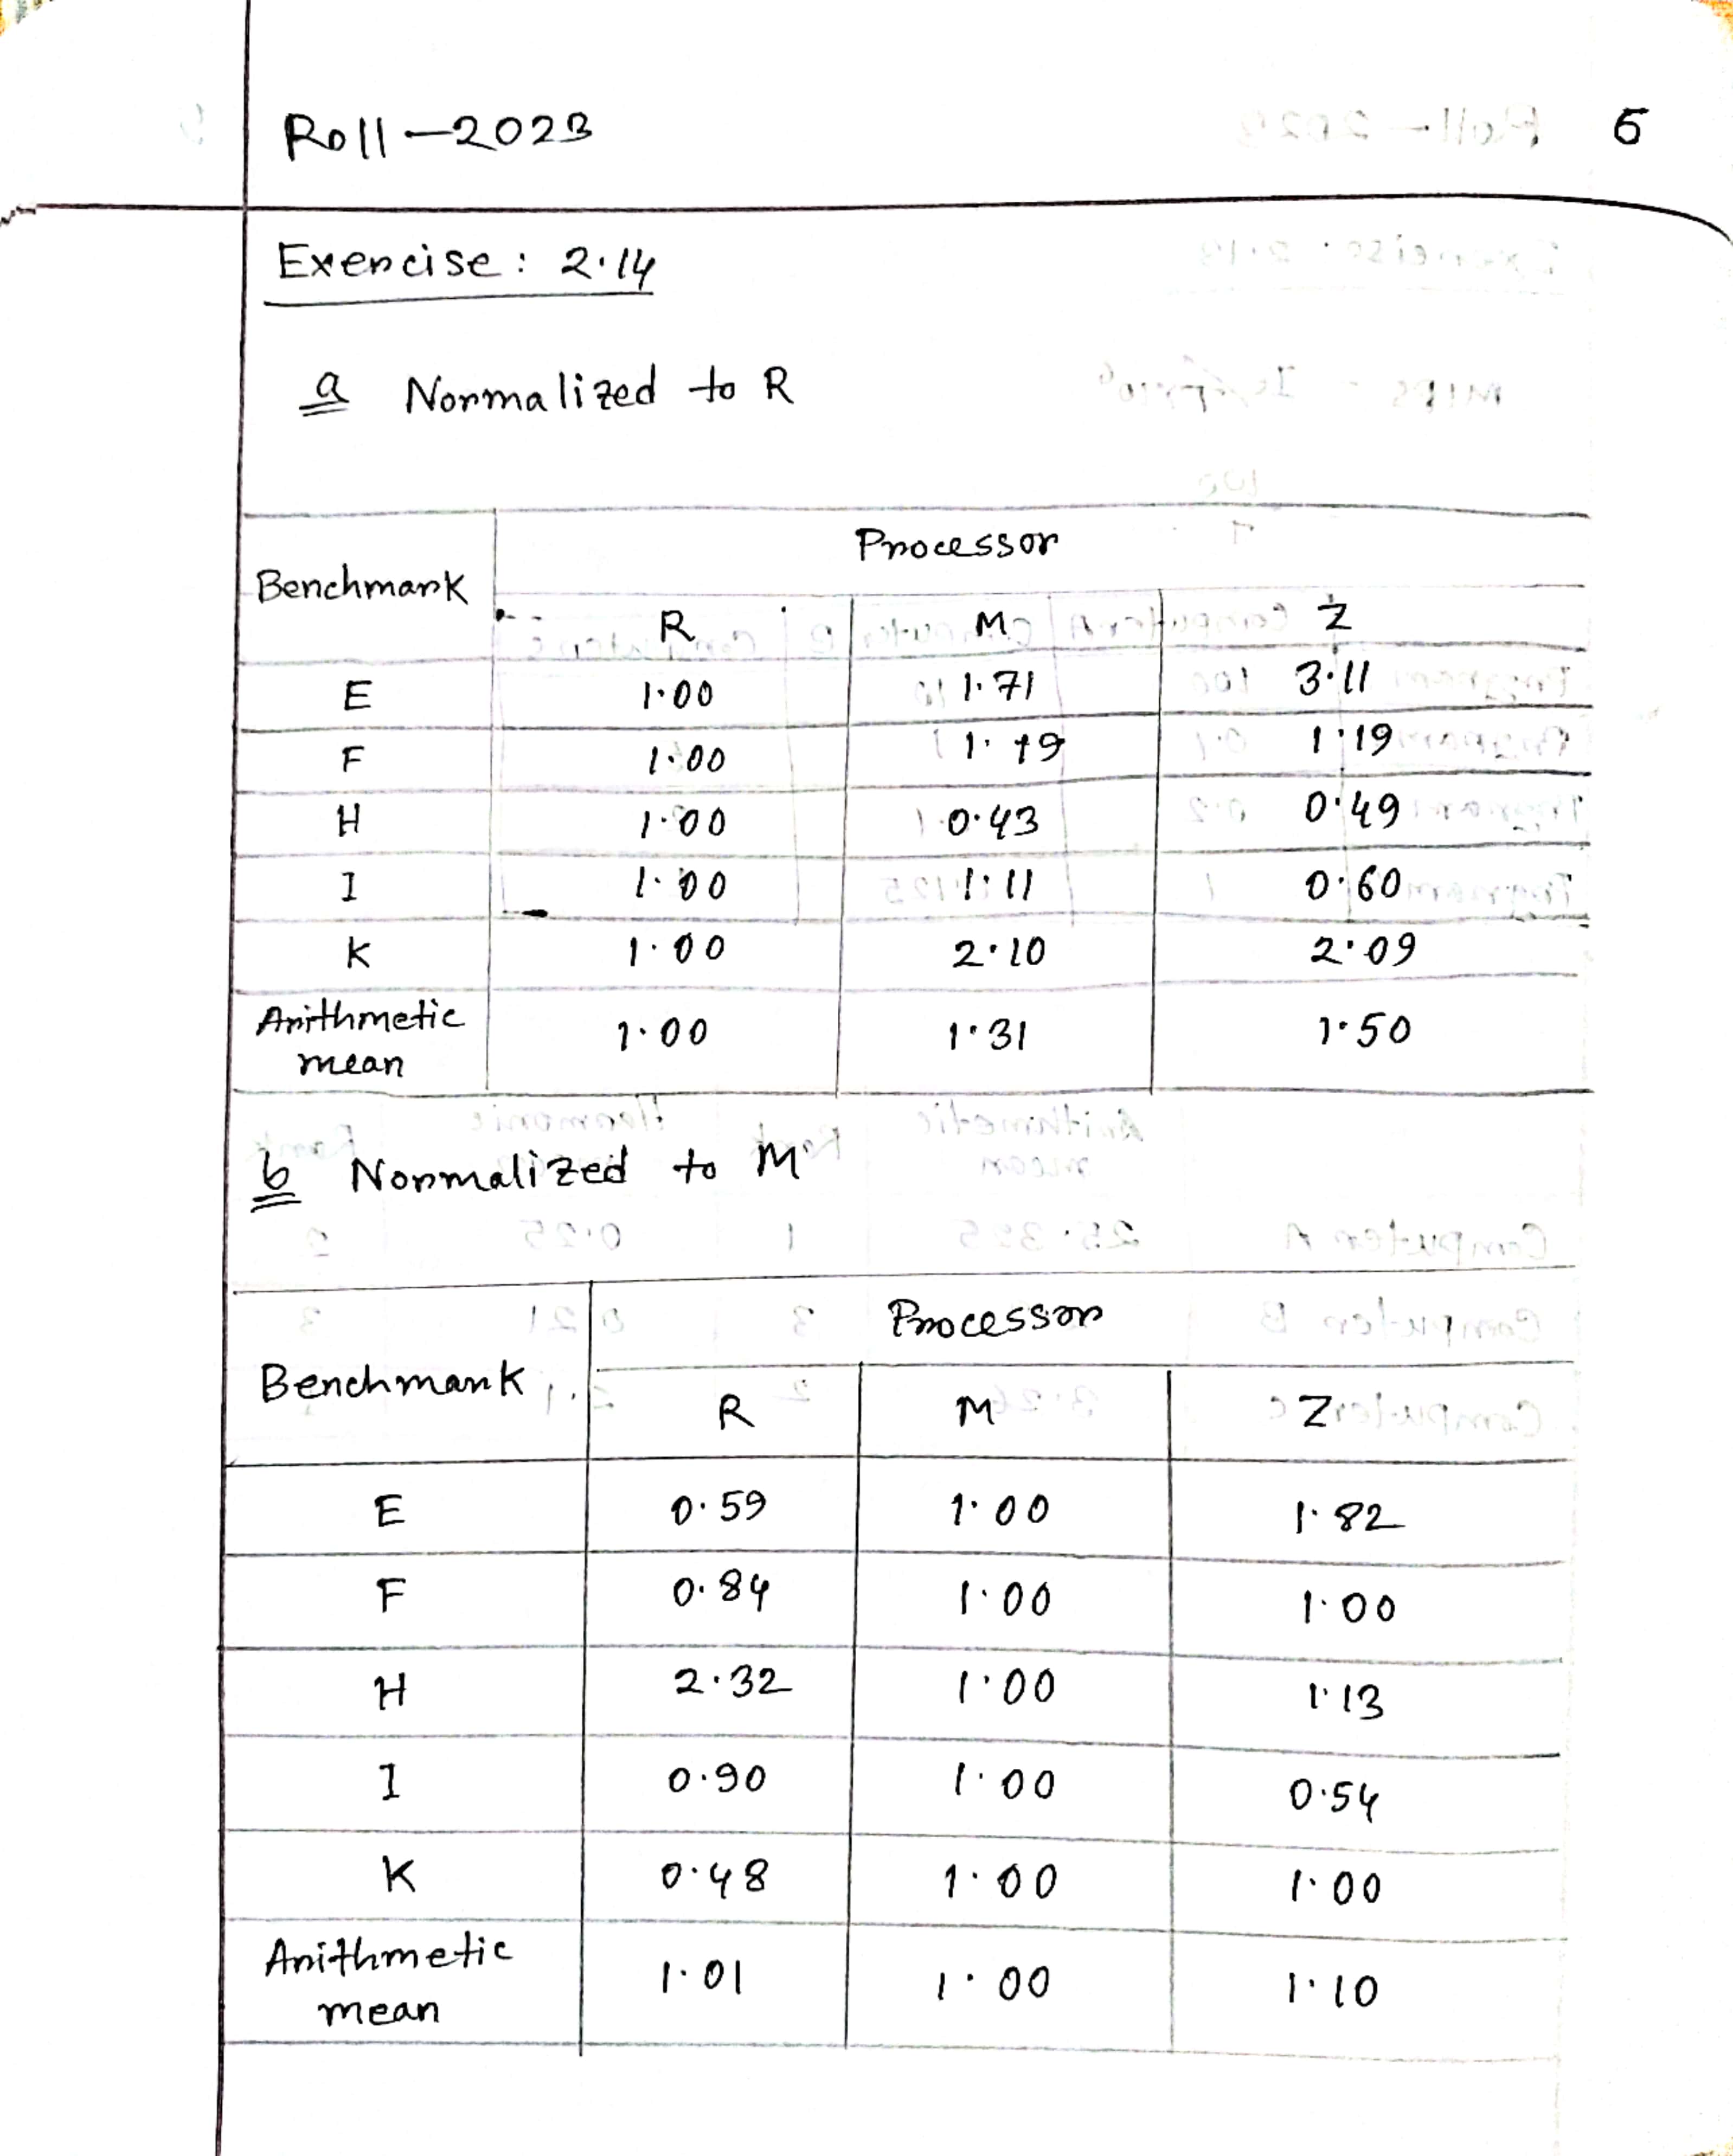 Roll-2023
6
Exercise: 2.14
a Normalized to R
Benchmark Processor
R M Z
E 1.00 1.71 3.11
F 1.00 1.19 1.19
H 1.00 0.43 0.49
I 1.00 1.11 0.60
K 1.00 2.10 2.09
Arithmetic mean 1.00 1.31 1.50
b Normalized to M
Benchmark Processor
R M Z
E 0.59 1.00 1.82
F 0.84 1.00 1.00
H 2.32 1.00 1.13
I 0.90 1.00 0.54
K 0.48 1.00 1.00
Arithmetic mean 1.01 1.00 1.10